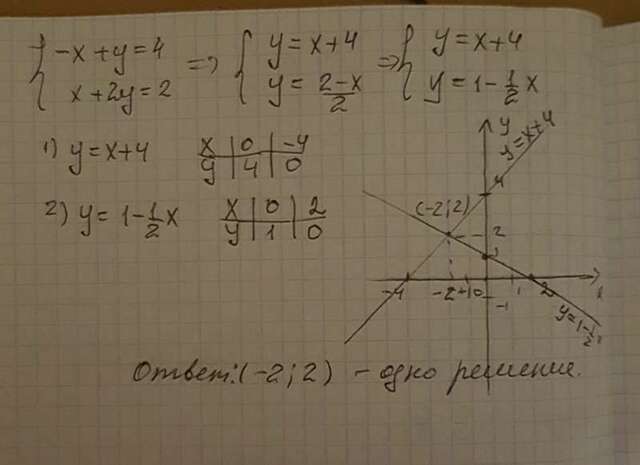 { -x + y = 4 => { y = x + 4 => { y = x + 4
x + 2y = 2 y = (2 - x)/2 y = 1 - 1/2 x
1) y = x + 4 x | 0 | -4
y | 4 | 0
2) y = 1 - 1/2 x x | 0 | 2
y | 1 | 0
y
y = x + 4
4
(-2; 2)
2
1
-4 -2 -1 0 1 2 x
-1
y = 1 - 1/2
Ответ: (-2; 2) - одно решение.